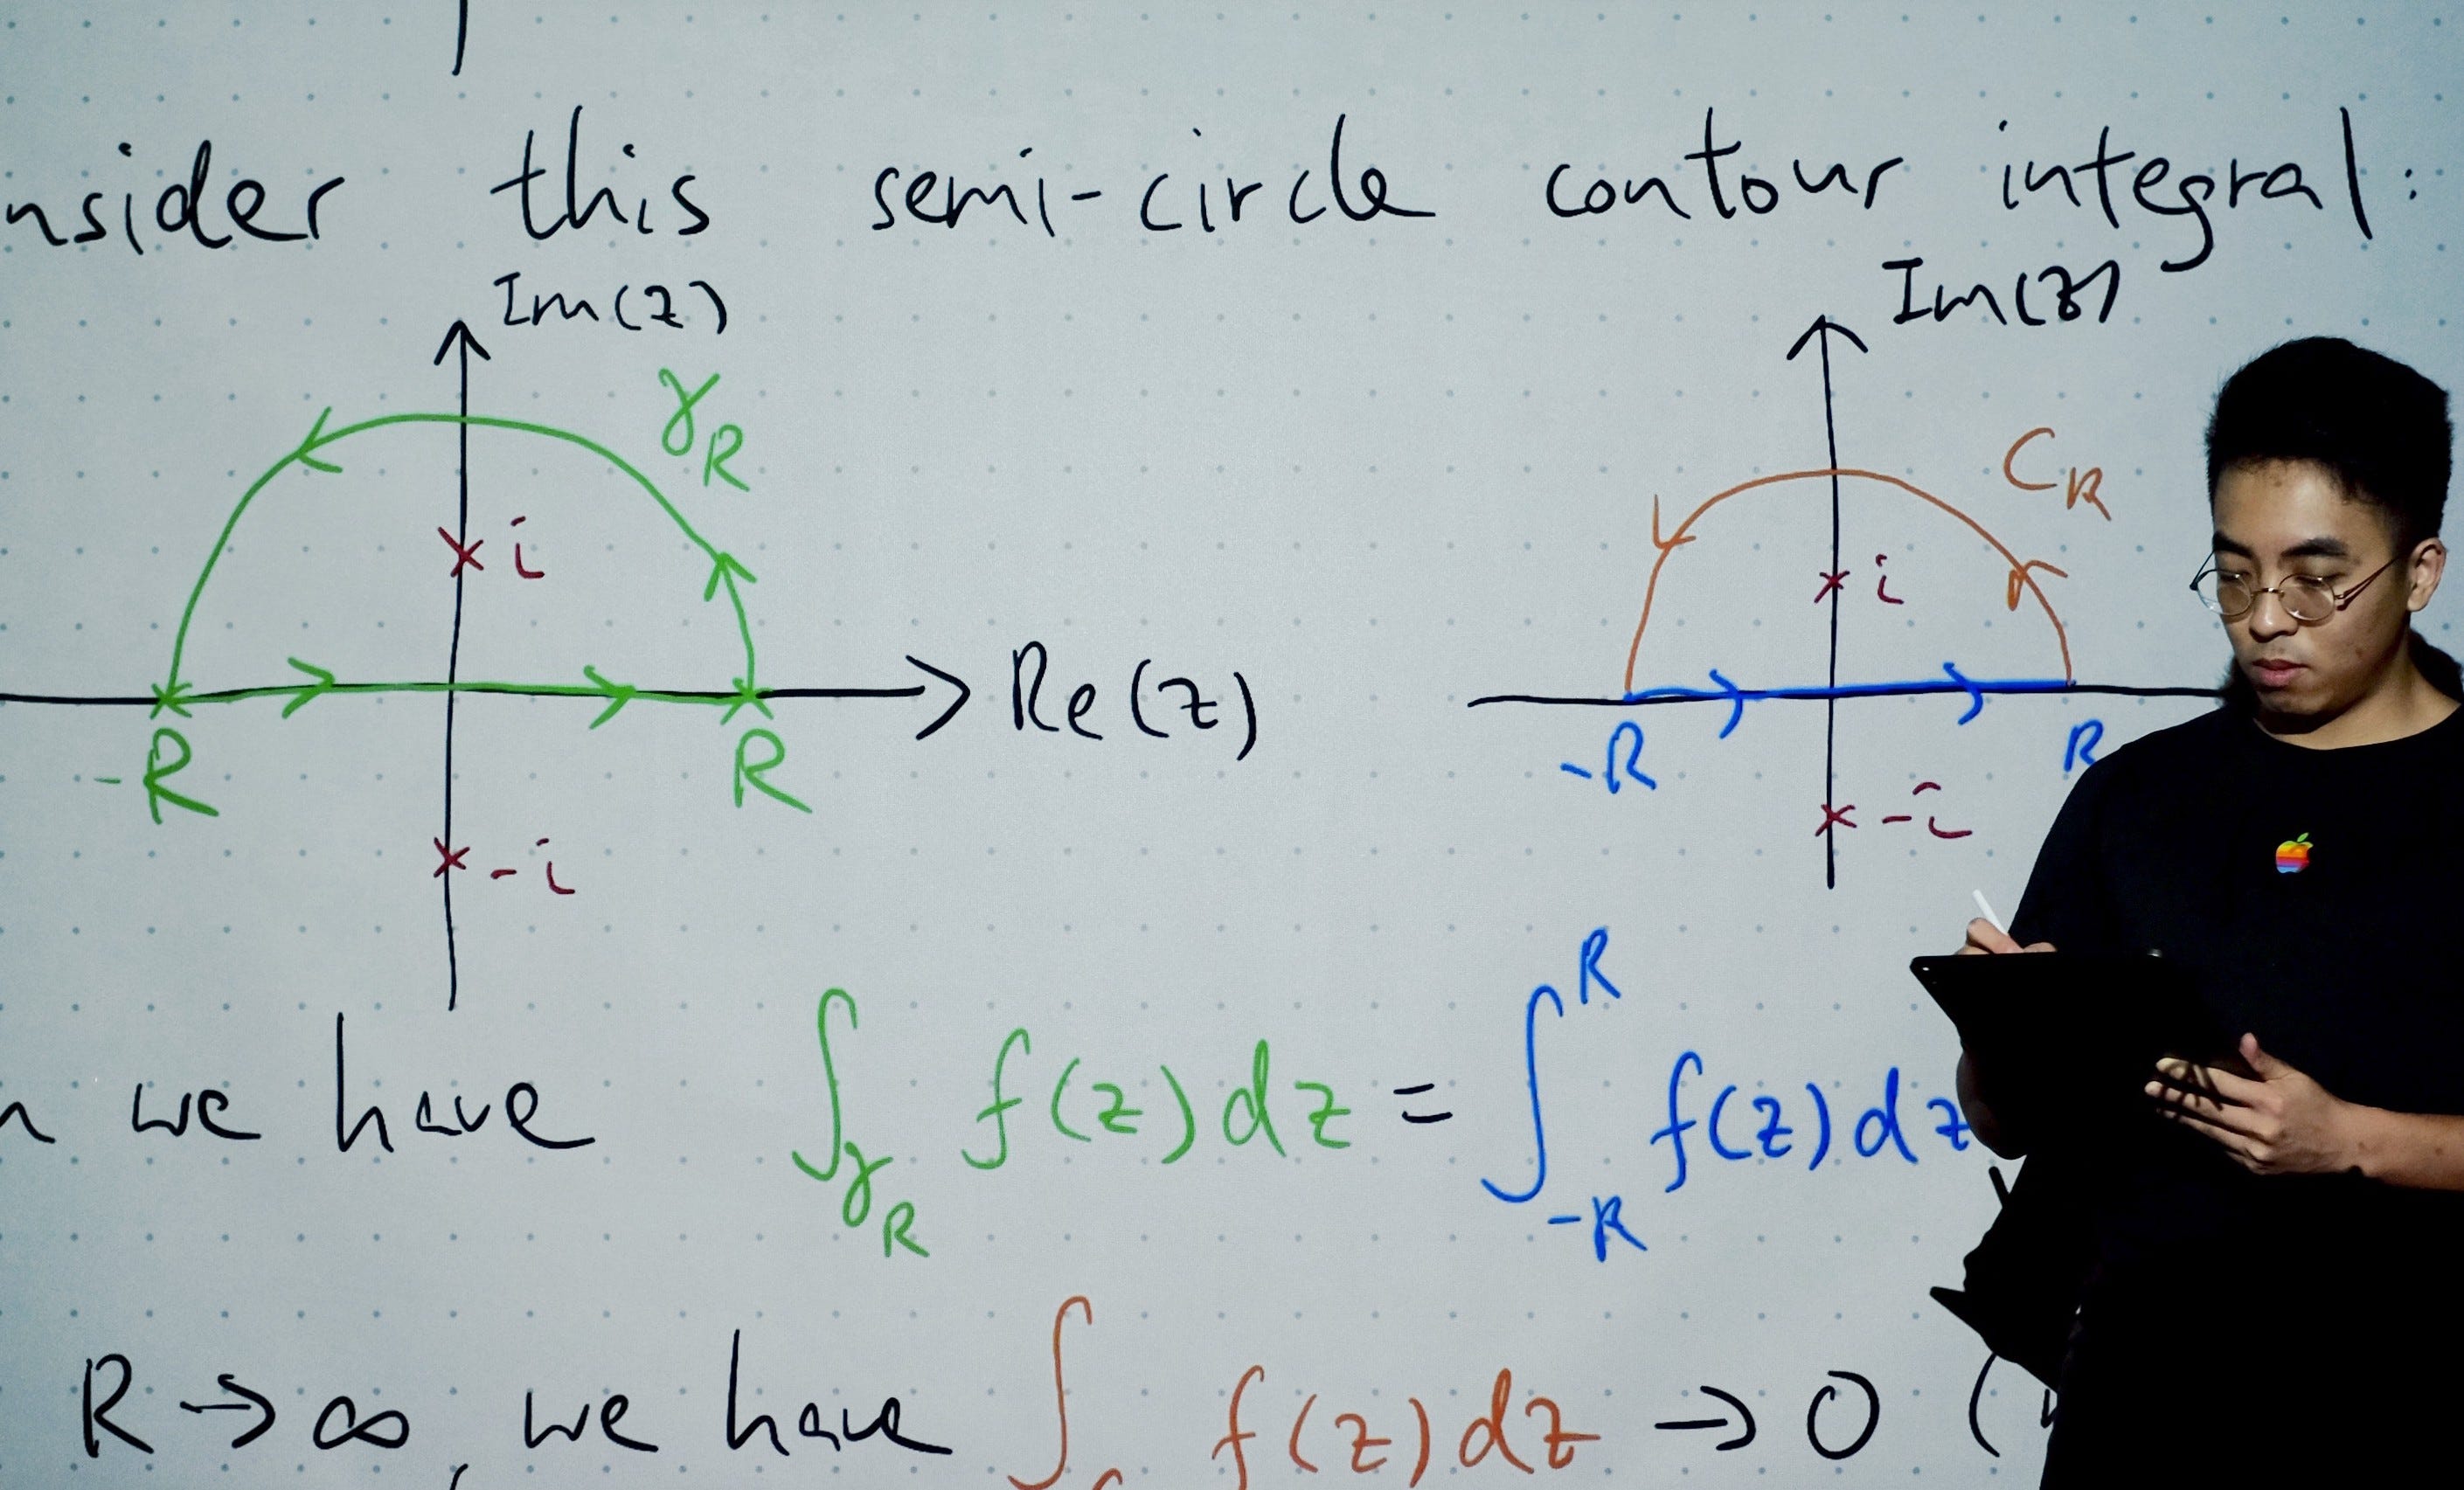 nsider this semi-circle contour integral:
Im(z) Im(z)
γ_R C_R
i i
Re(z)
-R R -R R
-i -i
n we have ∫_{γ_R} f(z)dz = ∫_{-R}^{R} f(z)dz
R → ∞, we have ∫ f(z)dz → 0 (